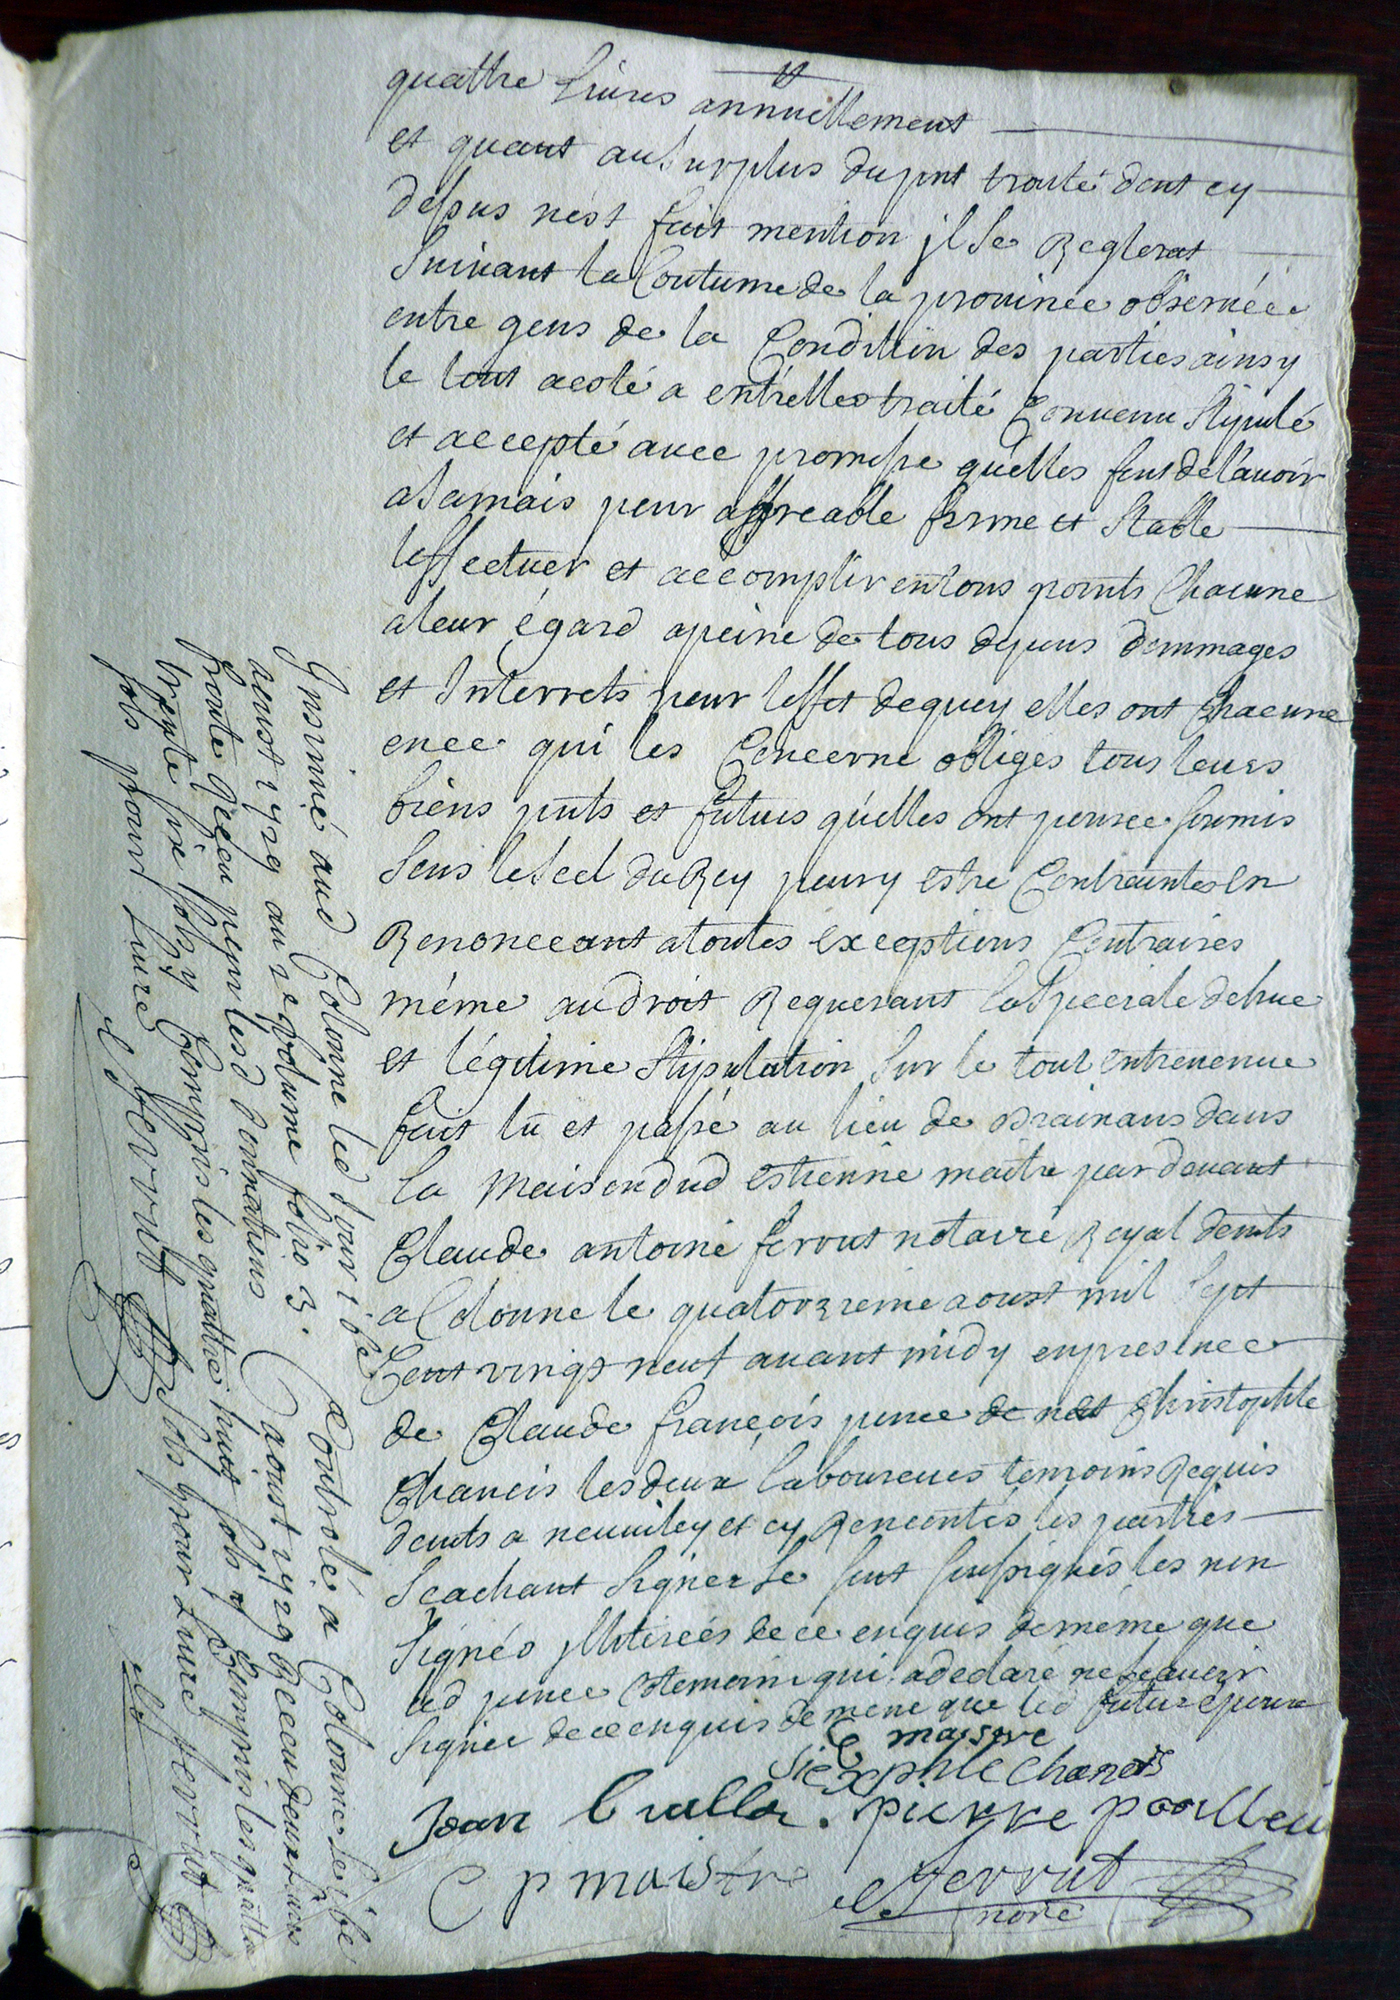 quattre livres annuellement
et quant au Surplus du pnt traité dont cy
dessus nest fait mention jl se Reglerat
Suivant la Coutume de la province observée
entre gens de la Condition des parties ainsy
le tout acoté a entrelles traité Convenu Stipulé
et accepté avec promesse quelles font de lavoir
a Jamais pour aggreable ferme et Stable
leffectuer et accomplir en tous points Chacune
a leur égard a peine de tous depens dommages
et Interrets pour leffet de quoy elles ont Chacune
en ce qui les Concerne obligés tous leurs
biens pnts et futurs quelles ont pour ce soumis
Sous le Scel du Roy pour y estre Contraintes en
Renonceant a toutes exceptions Contraires
même au droit Requerant la Speciale dehue
et légitime Stipulation Sur le tout entrevenue
fait lu et passé au lieu de Brainans dans
la Maison dud estienne maitre par devant
Claude antoine ferrut notaire Royal demts
a Colonne le quatorzieme aoust mil Sept
Cent vingt neuf avant midy en presence
de Claude françois et Christophle
Chaneis les deux laboureurs temoins Requis
demts a neuvilley et cy Rencontés les parties
Scachant Signer se sont soussignés les non
Signés jllitirées de ce enquis de même que
led temoin qui a declaré ne scavoir
signer de ce enquis de mene que led futur epoux
e maistre
phle Chaneds
Jean pierre
C p maistre C ferrut
nore
Insinué aud Colonne led Jour 16e
aoust 1729 au 2e volume folio 3.
Receu pour lesd donations
trente six sols y Compris les quattre
sols pour Livre C ferrut
Controlé a Colonne le 16e
aoust 1729 Receu
huit sols y Compris les quattre
sols pour Livre C ferrut